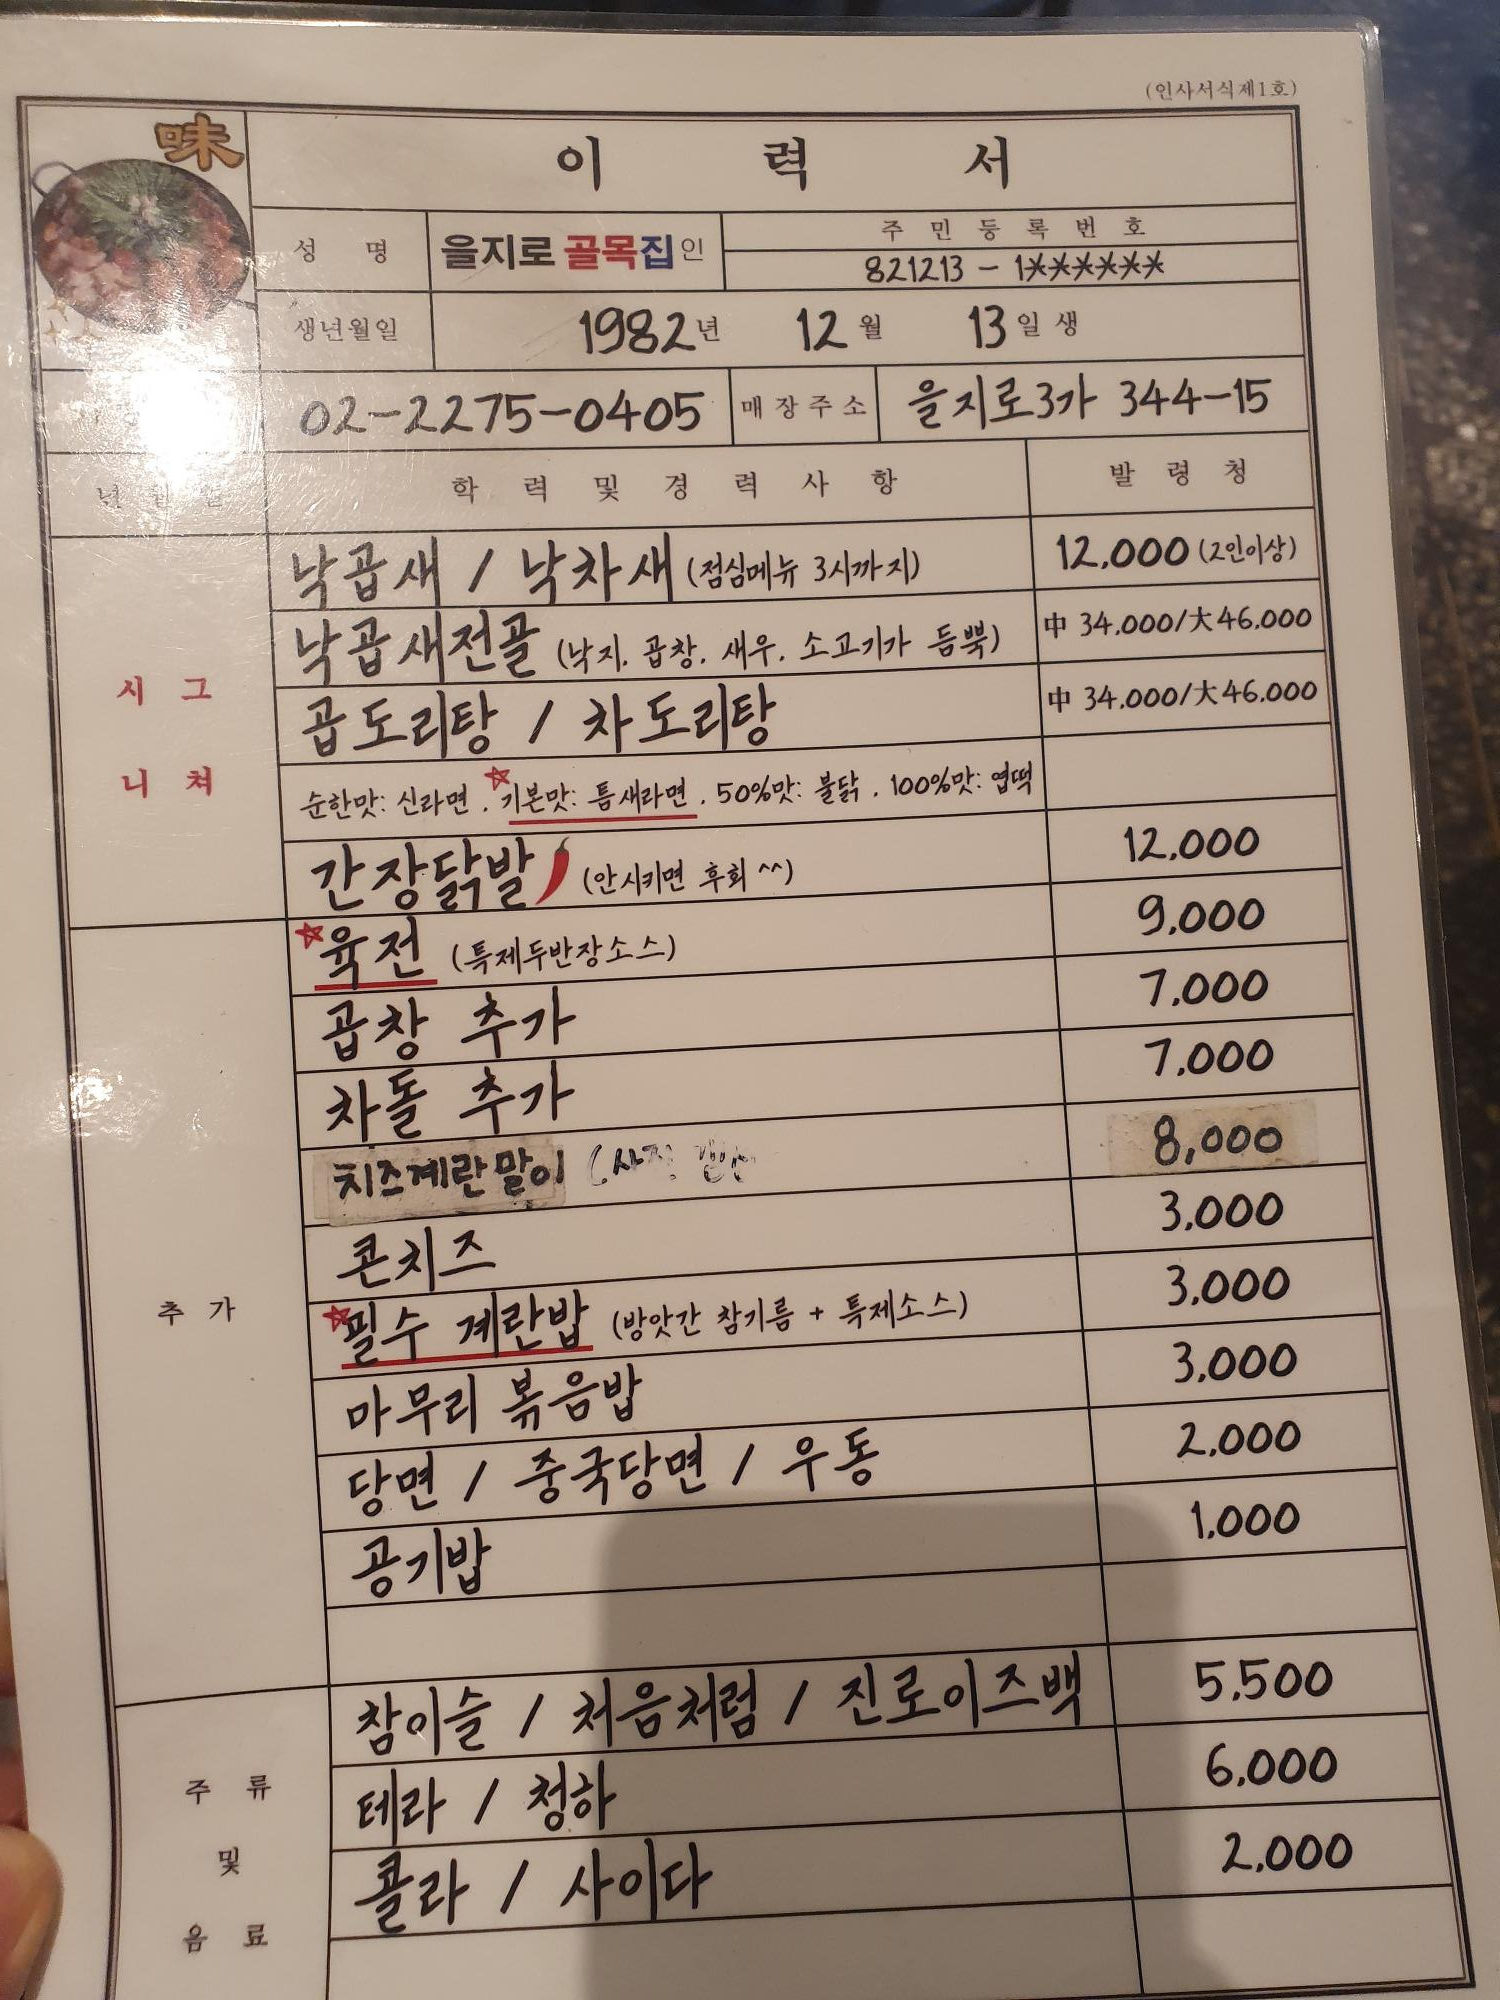 (인사서식제1호)
味
이 력 서
성 명 을지로 골목집 인
주 민 등 록 번 호
821213 - 1******
생년월일 1982년 12월 13일 생
02-2275-0405 매장주소 을지로3가 344-15
년 월 일 학 력 및 경 력 사 항 발 령 청
시 그
니 처
낙곱새 / 낙차새 (점심메뉴 3시까지) 12,000 (2인이상)
낙곱새전골 (낙지. 곱창. 새우. 소고기가 듬뿍) 中 34.000/大 46.000
곱도리탕 / 차도리탕 中 34.000/大 46.000
순한맛: 신라면 . ☆기본맛: 틈새라면 . 50%맛: 불닭 . 100%맛: 엽떡
간장닭발 (안시키면 후회 ^^) 12,000
추 가
☆육전 (특제두반장소스) 9,000
곱창 추가 7.000
차돌 추가 7.000
치즈계란말이 8,000
콘치즈 3.000
☆필수 계란밥 (방앗간 참기름 + 특제소스) 3.000
마무리 볶음밥 3.000
당면 / 중국당면 / 우동 2.000
공기밥 1.000
주 류
및
음 료
참이슬 / 처음처럼 / 진로이즈백 5.500
테라 / 청하 6.000
콜라 / 사이다 2.000